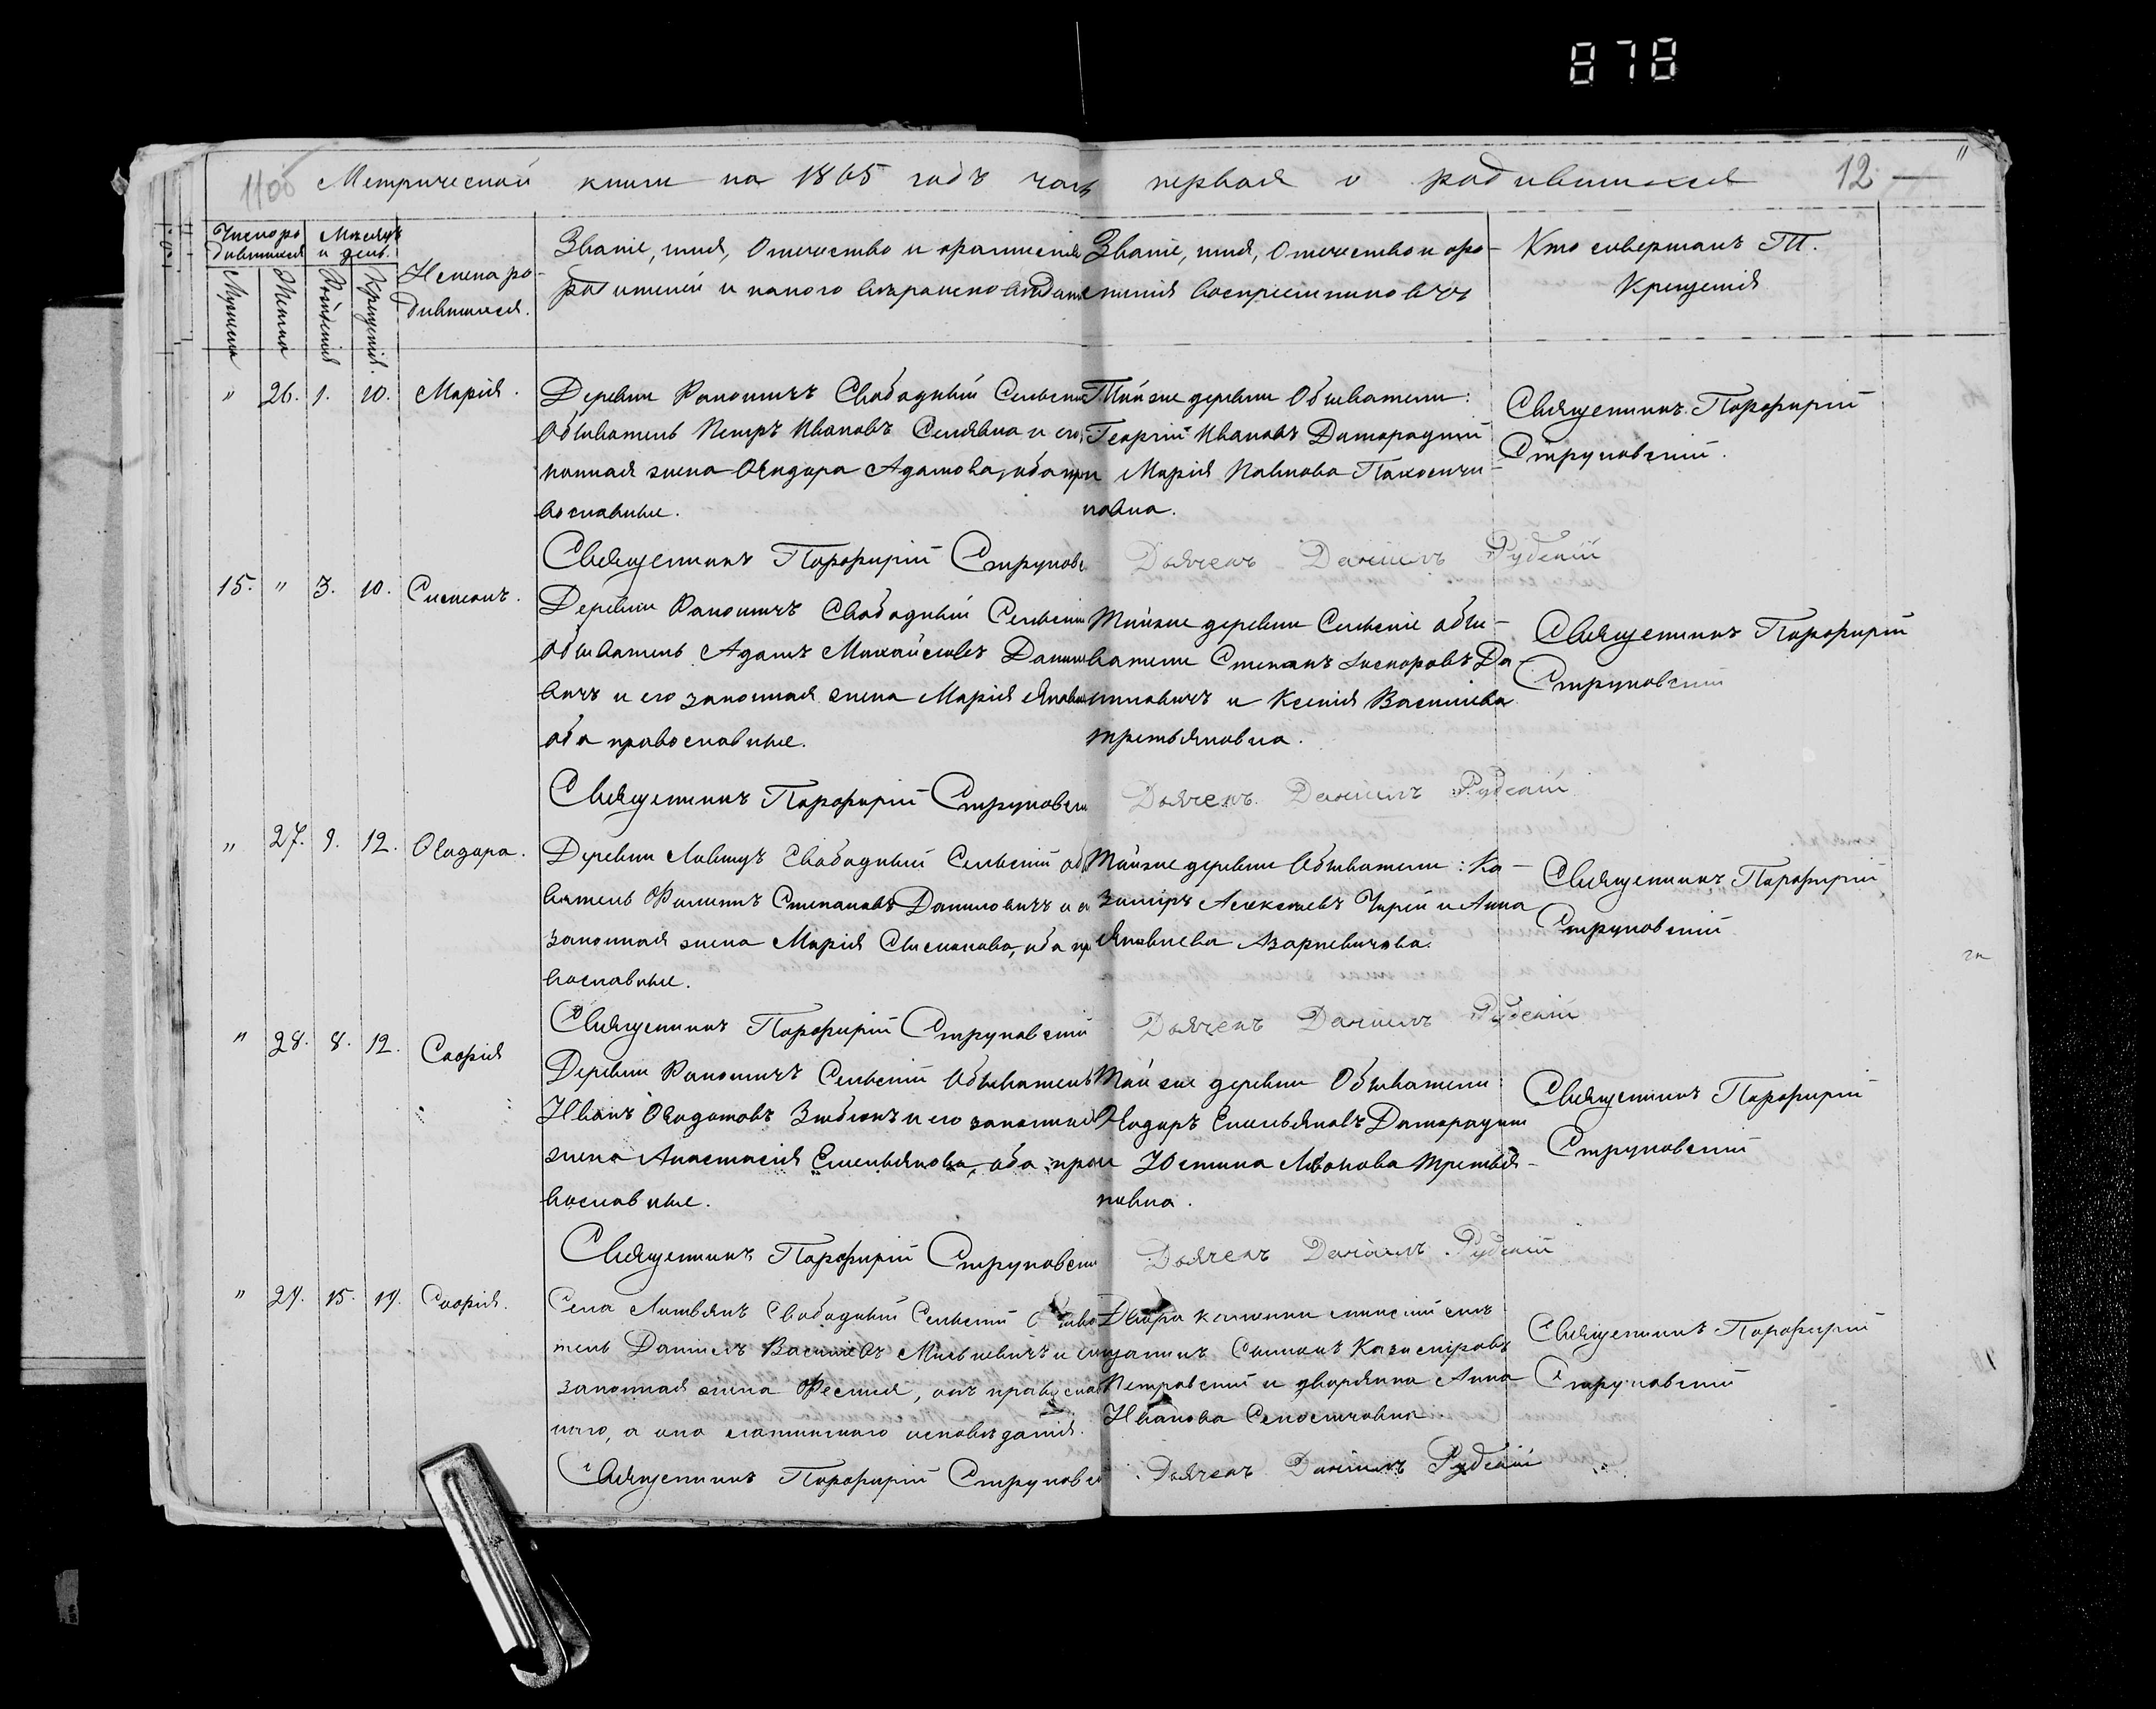 878
1100 Метрической книги на 1865 годъ часть первая о родившихся 12
Число родившихся
Мѣсяцъ и день.
Мужеска
Женска
Рожденія
Крещенія.
Имена родившихся.
Званіе, имя, Отечество и фамилія
родителей и какого вѣроисповѣданія
Званіе, имя, Отечество и фа-
милія воспріемниковъ
Кто совершалъ Т.
Крещенія
" 26. 1. 10. Марія.
Деревни Свободный Сельскій
Обыватель Петръ Ивановъ и его
жена Ѳеодора Адамова, оба пра
вославные.
Тойже деревни Обыватели:
Георгій Ивановъ Доморацкій
и Марія Павлова
новна.
Священникъ Порфирій
Струковскій.
Священникъ Порфирій Струковс
Дьячекъ Даніилъ Рубскій
15. " 3. 10. Симеонъ.
Деревни Свободный Сельскій
Обыватель Адамъ Данило
вичъ и его законная жена Марія
оба православные.
Тойже деревни Сельскіе обы-
ватели Степанъ Да
ниловичъ и Ксенія Васильева
третьяковна.
Священникъ Порфирій
Струковскій
Священникъ Порфирій Струковскі
Дьячекъ Даніилъ Рубскій
" 27. 9. 12. Ѳеодора.
Деревни Свободный Сельскій об
ватель Филиппъ Степановъ Даниловичъ и е
законная жена Марія Симонова, оба пр
вославные.
Тойже деревни Обыватели: Ка-
зиміръ Алексѣевъ и Анна
Яковлева Азаркевичова.
Священникъ Порфирій
Струковскій
Священникъ Порфирій Струковскій
Дьячекъ Даніилъ Рубскій
" 28. 8. 12. Софія
Деревни Сельскій Обыватель
Иванъ и его законная
жена Анастасія Емельянова, оба пра
вославные.
Той же деревни Обыватели
Ѳеодоръ Емельяновъ Доморацкій
и Юстина Третья-
ковна.
Священникъ Порфирій
Струковскій
Священникъ Порфирій Струковскі
Дьячекъ Даніилъ Рубскій
" 29. 15. 19. Софія.
Села Свободный Сельскій
тель Даніилъ Василіевъ и его
законная жена, онъ православ
наго, а она латинскаго исповѣданія.
Двора
Симонъ Казиміровъ
Петровскій и дворянка Анна
Иванова
Священникъ Порфирій
Струковскій
Священникъ Порфирій Струковск
Дьячекъ Даніилъ Рубскій